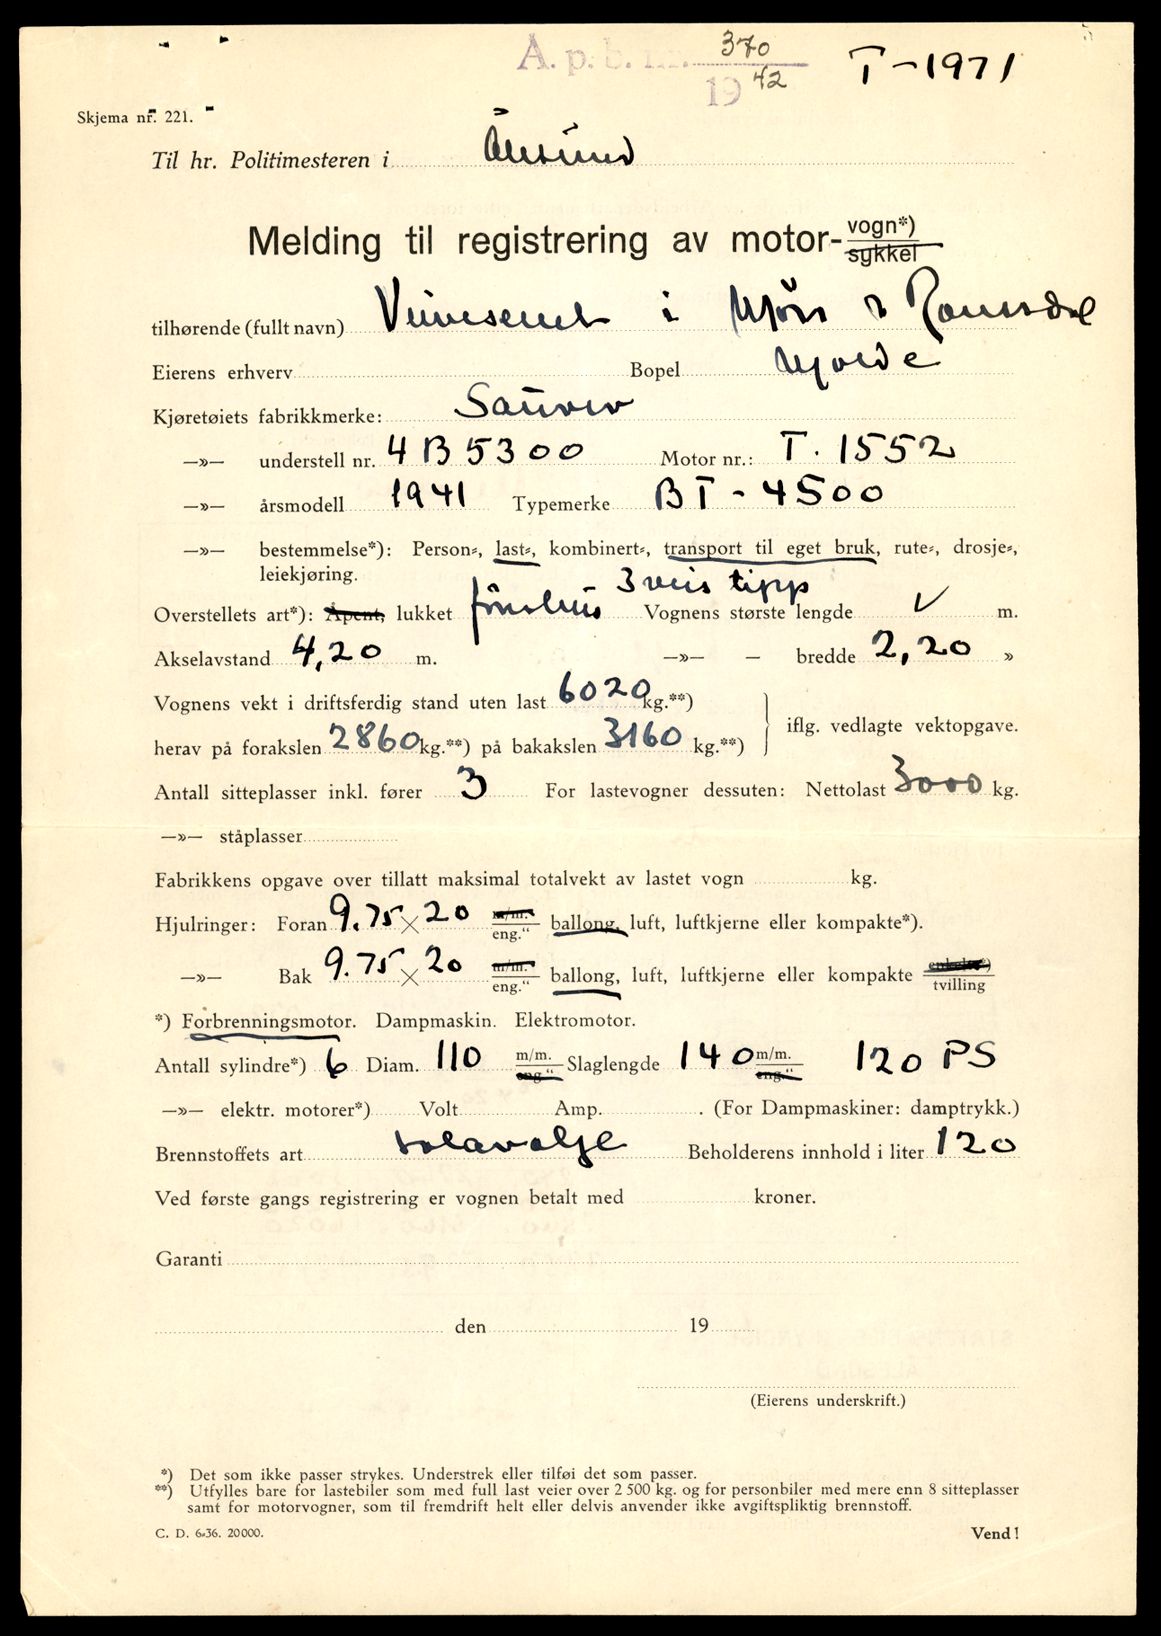 A. p. b. nr. 370
1942
T-1971
Skjema nr. 221.
Til hr. Politimesteren i Ålesund
Melding til registrering av motor-vogn*)
sykkel
tilhørende (fullt navn) Veivesenet i Møre & Romsdal
Eierens erhverv Bopel Molde
Kjøretøiets fabrikkmerke: Saurer
—»— understell nr. 4 B 5300 Motor nr.: T. 1552
—»— årsmodell 1941 Typemerke BT-4500
—»— bestemmelse*): Person-, last-, kombinert-, transport til eget bruk, rute-, drosje-,
leiekjøring.
3 veis tipp
Overstellets art*): Åpent, lukket førerhus Vognens største lengde √ m.
Akselavstand 4,20 m. —»— — bredde 2,20 »
Vognens vekt i driftsferdig stand uten last 6020 kg.**)
iflg. vedlagte vektopgave.
herav på forakslen 2860 kg.**) på bakakslen 3160 kg.**)
Antall sitteplasser inkl. fører 3 For lastevogner dessuten: Nettolast 3000 kg.
—»— ståplasser
Fabrikkens opgave over tillatt maksimal totalvekt av lastet vogn kg.
Hjulringer: Foran 9.75 × 20 m/m. eng.“ ballong, luft, luftkjerne eller kompakte*).
—»— Bak 9.75 × 20 m/m. eng.“ ballong, luft, luftkjerne eller kompakte enkelte*) tvilling
*) Forbrenningsmotor. Dampmaskin. Elektromotor.
Antall sylindre*) 6 Diam. 110 m/m. eng.“ Slaglengde 140 m/m. eng.“ 120 PS
—»— elektr. motorer*) Volt Amp. . (For Dampmaskiner: damptrykk.)
Brennstoffets art solarolje Beholderens innhold i liter 120
Ved første gangs registrering er vognen betalt med kroner.
Garanti
den 19
(Eierens underskrift.)
*) Det som ikke passer strykes. Understrek eller tilføi det som passer.
**) Utfylles bare for lastebiler som med full last veier over 2 500 kg. og for personbiler med mere enn 8 sitteplasser
samt for motorvogner, som til fremdrift helt eller delvis anvender ikke avgiftspliktig brennstoff.
C. D. 6-36. 20000.
Vend!